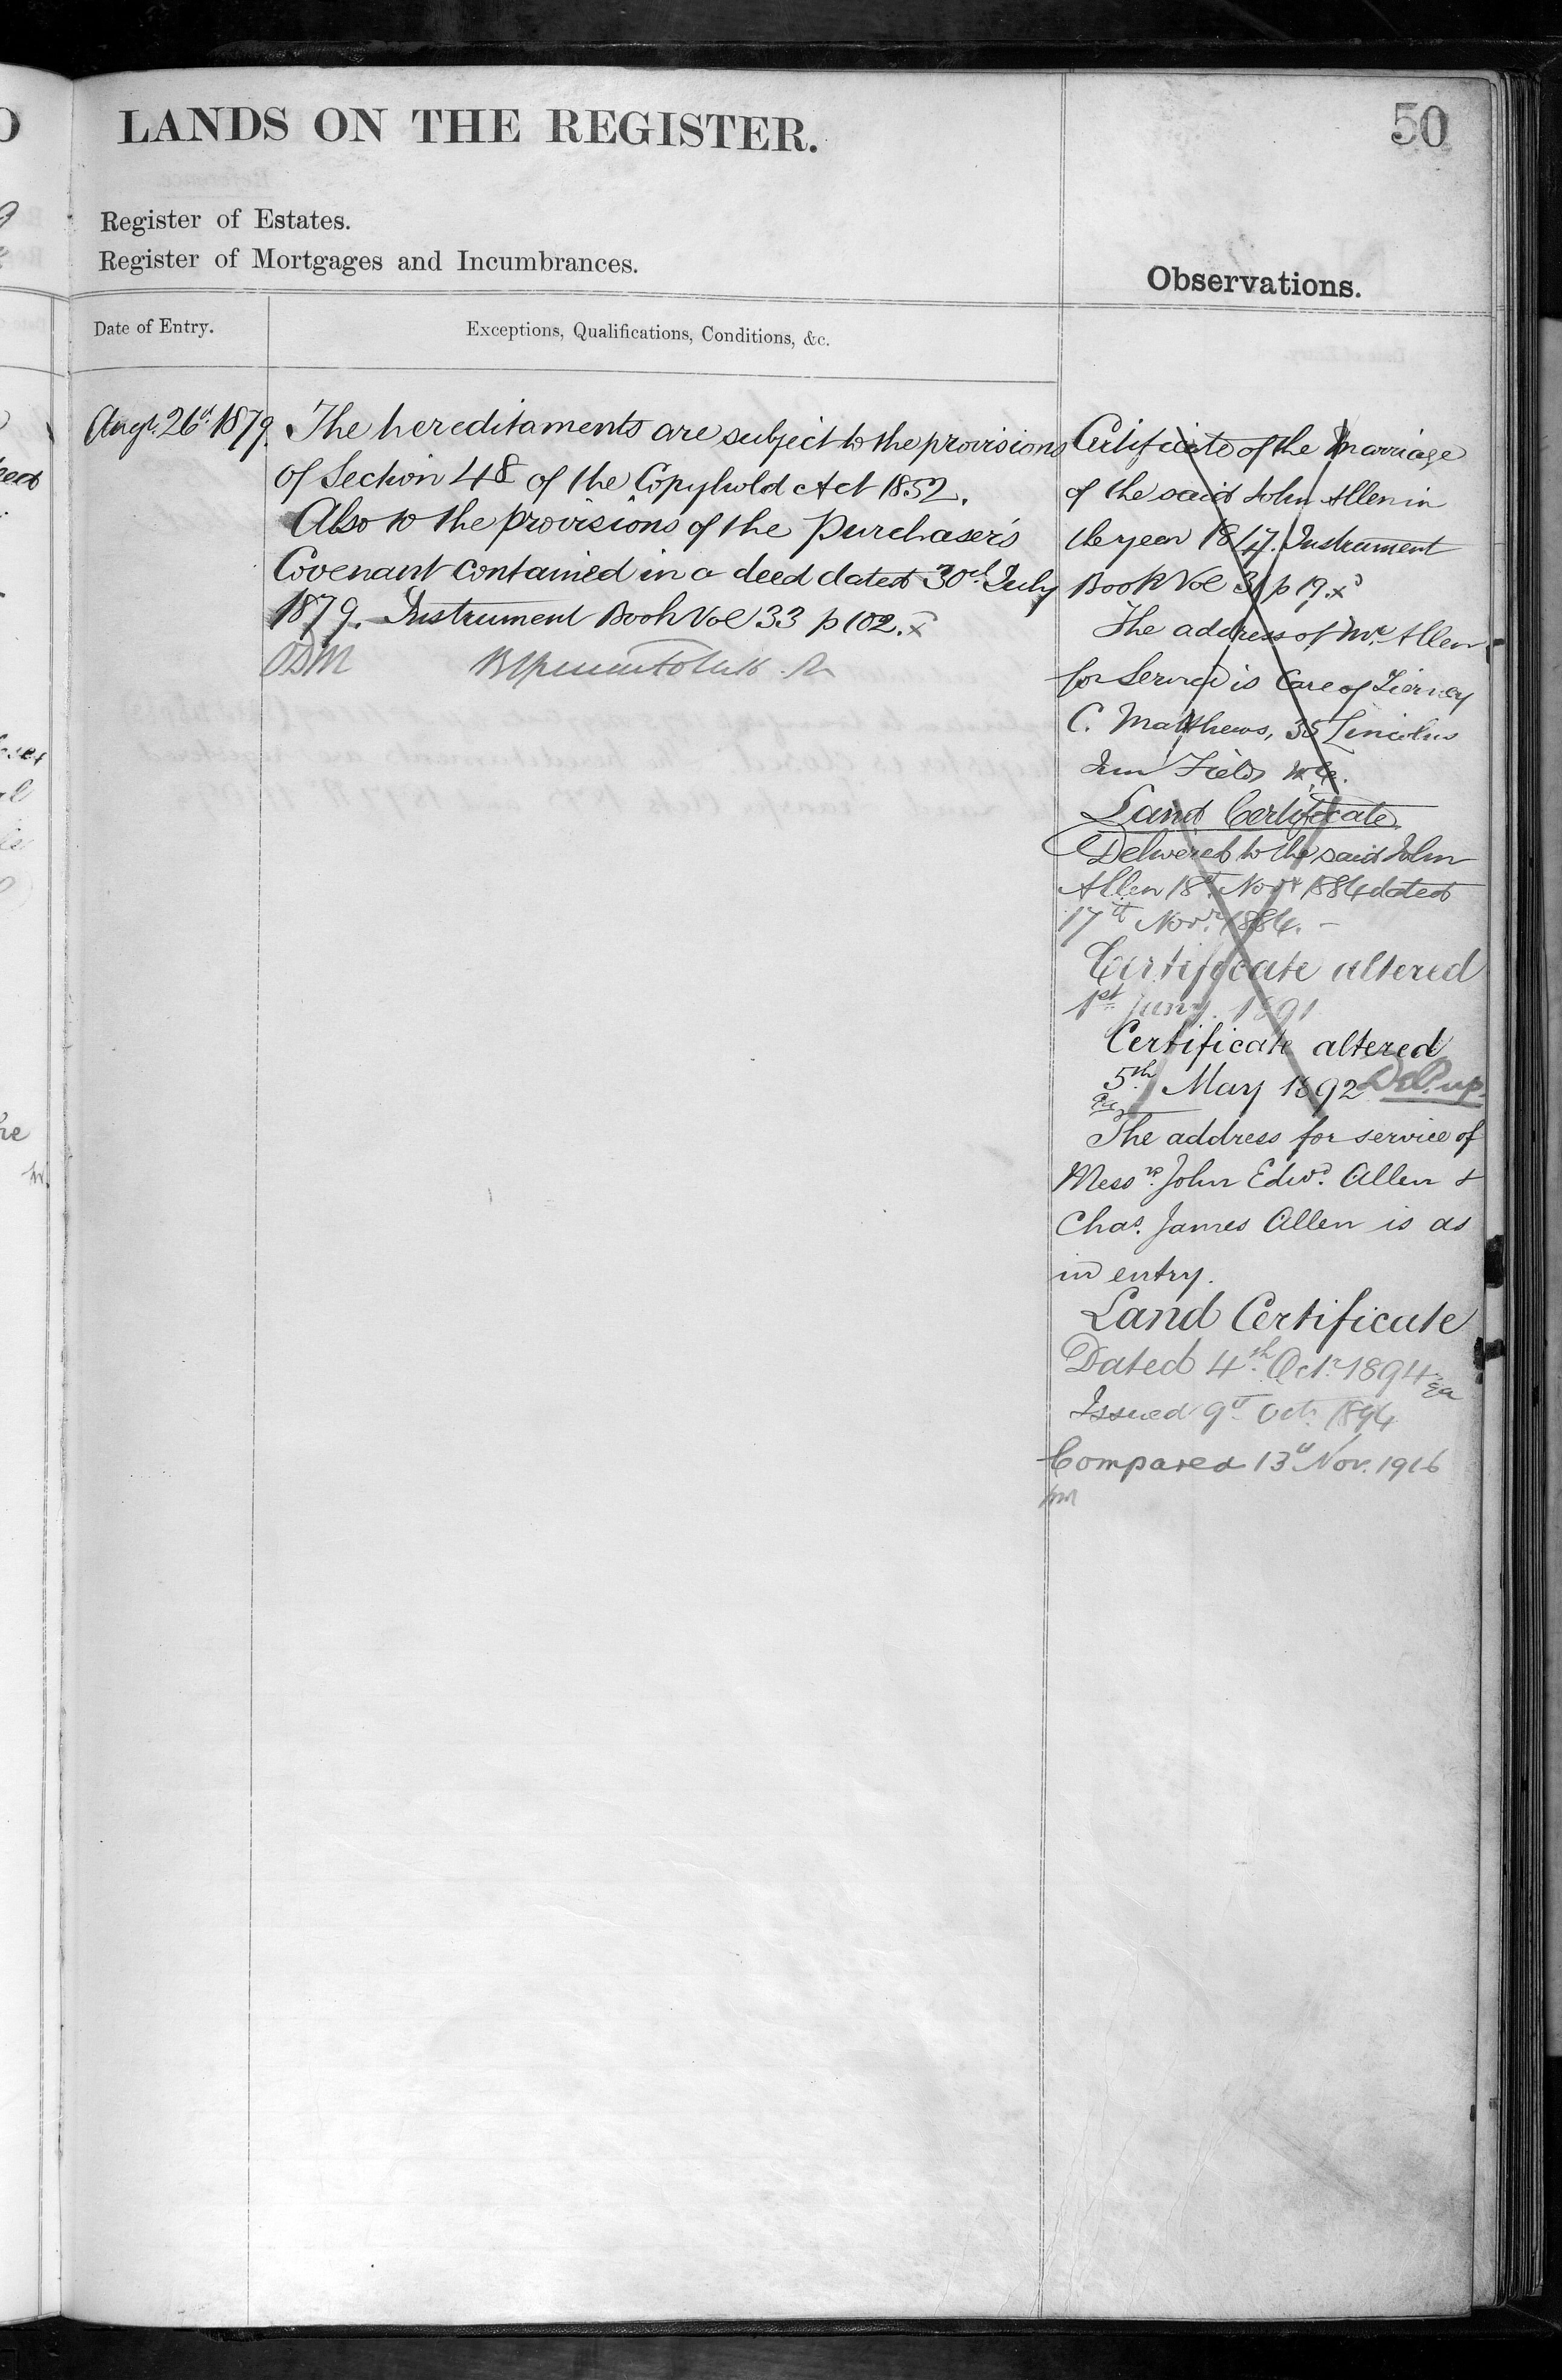 LANDS ON THE REGISTER.
50
Register of Estates.
Register of Mortgages and Incumbrances.
Observations.
Date of Entry.
Exceptions, Qualifications, Conditions, &c.
Augt. 26th 1879.
The hereditaments are subject to the provisions
of Section 48 of the Copyhold Act 1852.
Also to the provisions of the Purchaser's
Covenant contained in a deed dated 30th July
1879. Instrument Book Vol 33 p 102.
Certificate of the Marriage
of the said John Allen in
the year 1847. Instrument
Book Vol 31 p 19.
The address of Mr. Allen
for Service is Care of Tierney
C. Matthews, 35 Lincolns
Inn Fields W.C.
Land Certificate
Delivered to the said John
Allen 18th Novr 1884 dated
17th Novr. 1884. –
Certificate altered
1st Jany. 1891
Certificate altered
5th May 1892
The address for service of
Messrs. John Edwd. Allen &
Chas. James Allen is as
in entry.
Land Certificate
Dated 4th Octr. 1894
Issued 9th Oct. 1894
Compared 13th Nov. 1916